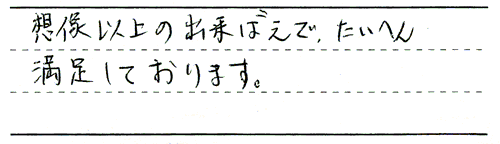 想像以上の出来ばえで、たいへん
満足しております。